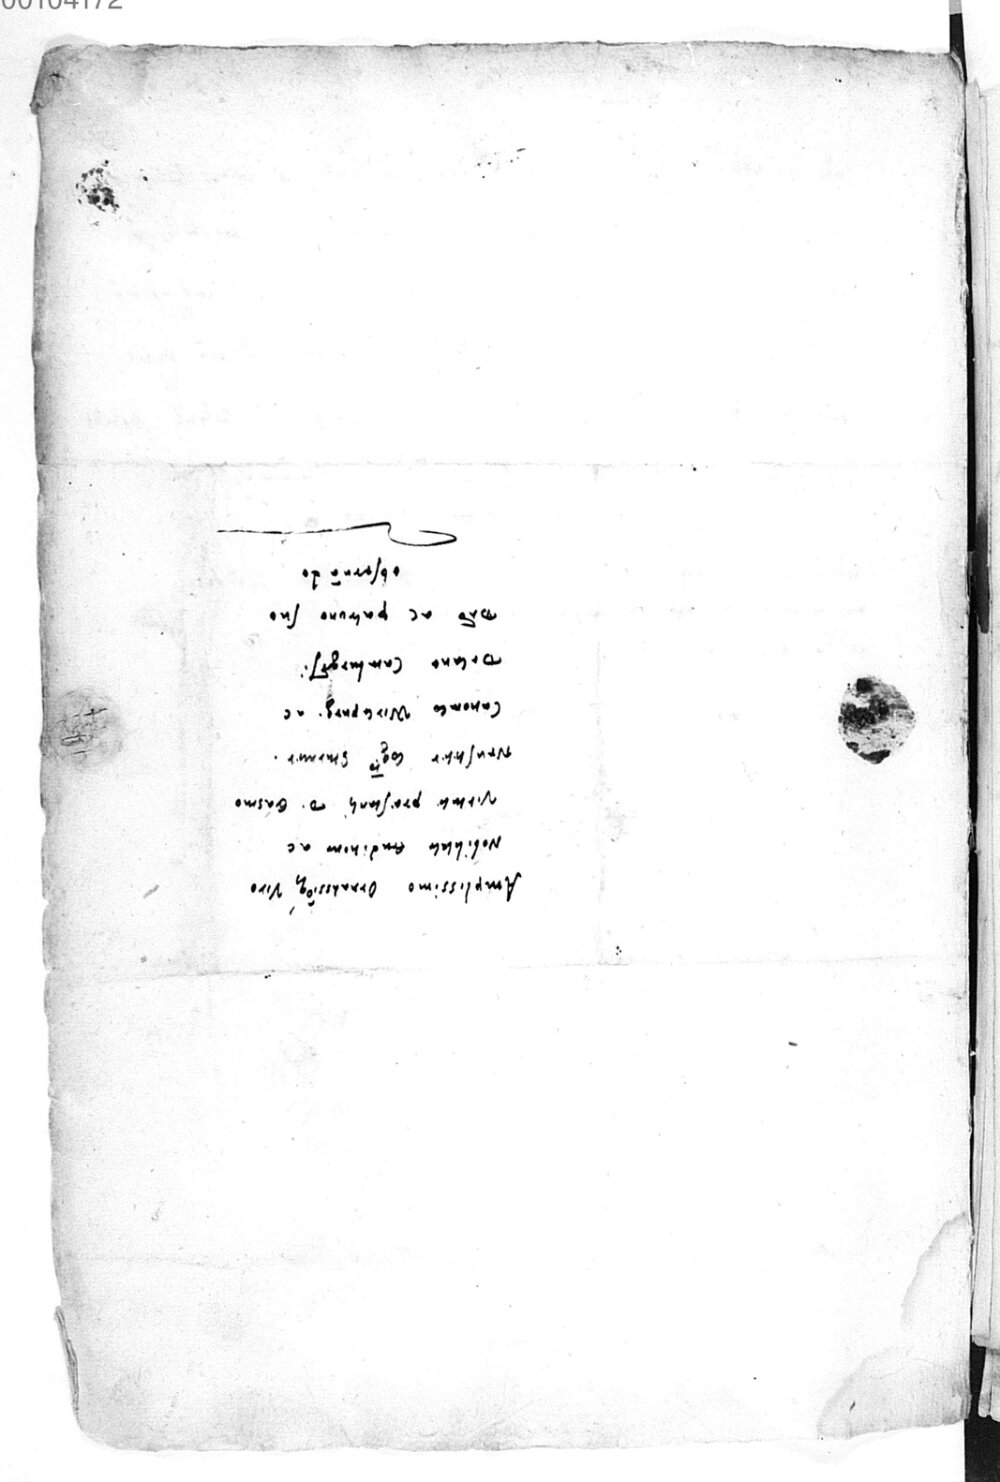 00104172
Amplissimo Ornatissiōq; Viro
Nobilitate Eruditione ac
Virtute præstanti D. Erasmo
Neustetter cogto Sturmer.
Canonico Wirtzpurg. ac
Decano Comburgeñ.
Dño ac patrono suo
obseruādo